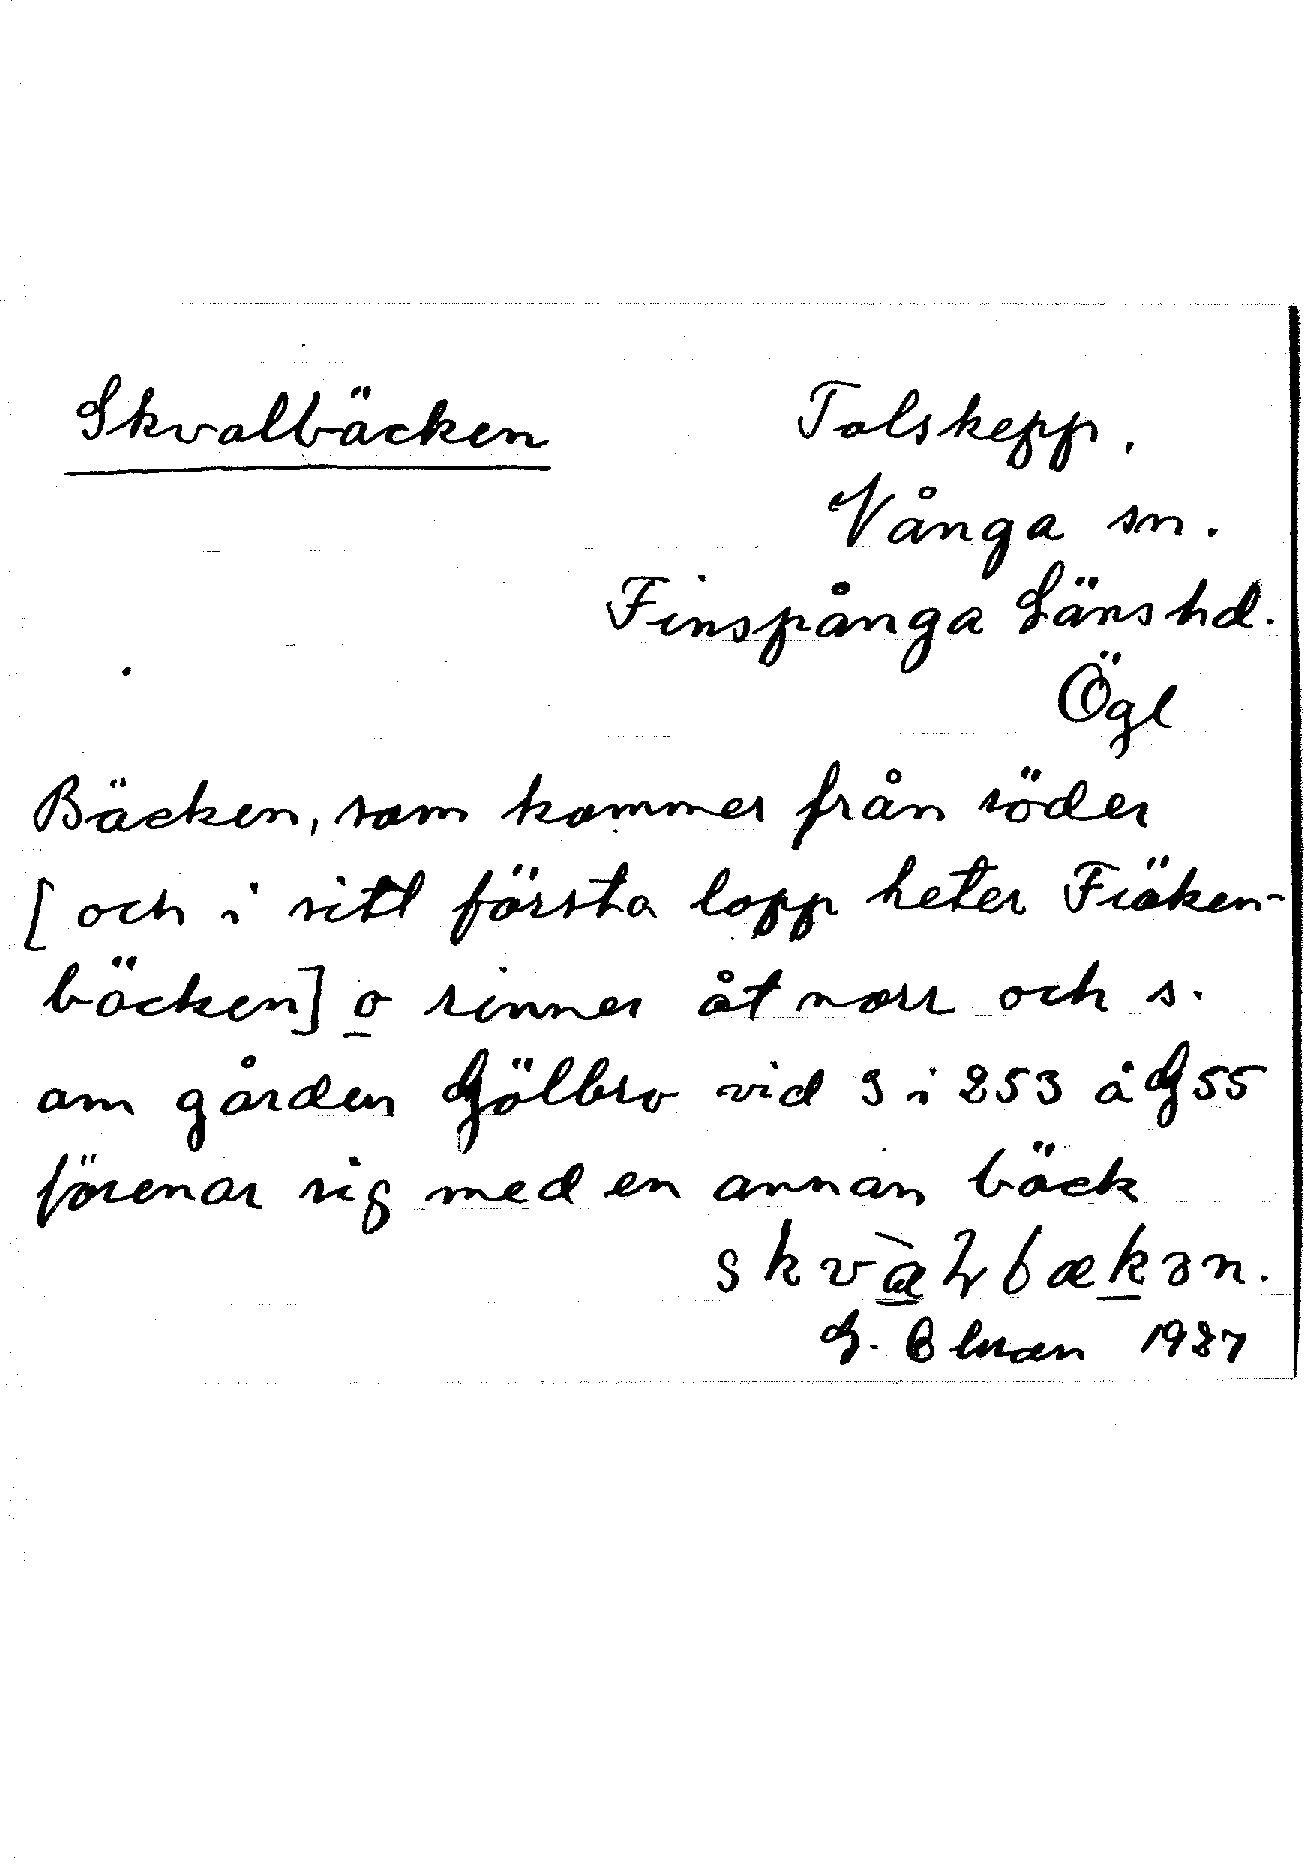 Skvalbäcken
Tolskepp.
Vånga sn.
Finspånga Länshd.
Ögl
Bäcken, som kommer från söder
[och i sitt första lopp heter Fräken-
bäcken] o rinner åt norr och s.
om gården Gölbro vid 3 i 253 å G55
förenar sig med en annan bäck
skvàlbækən.
G. 1927